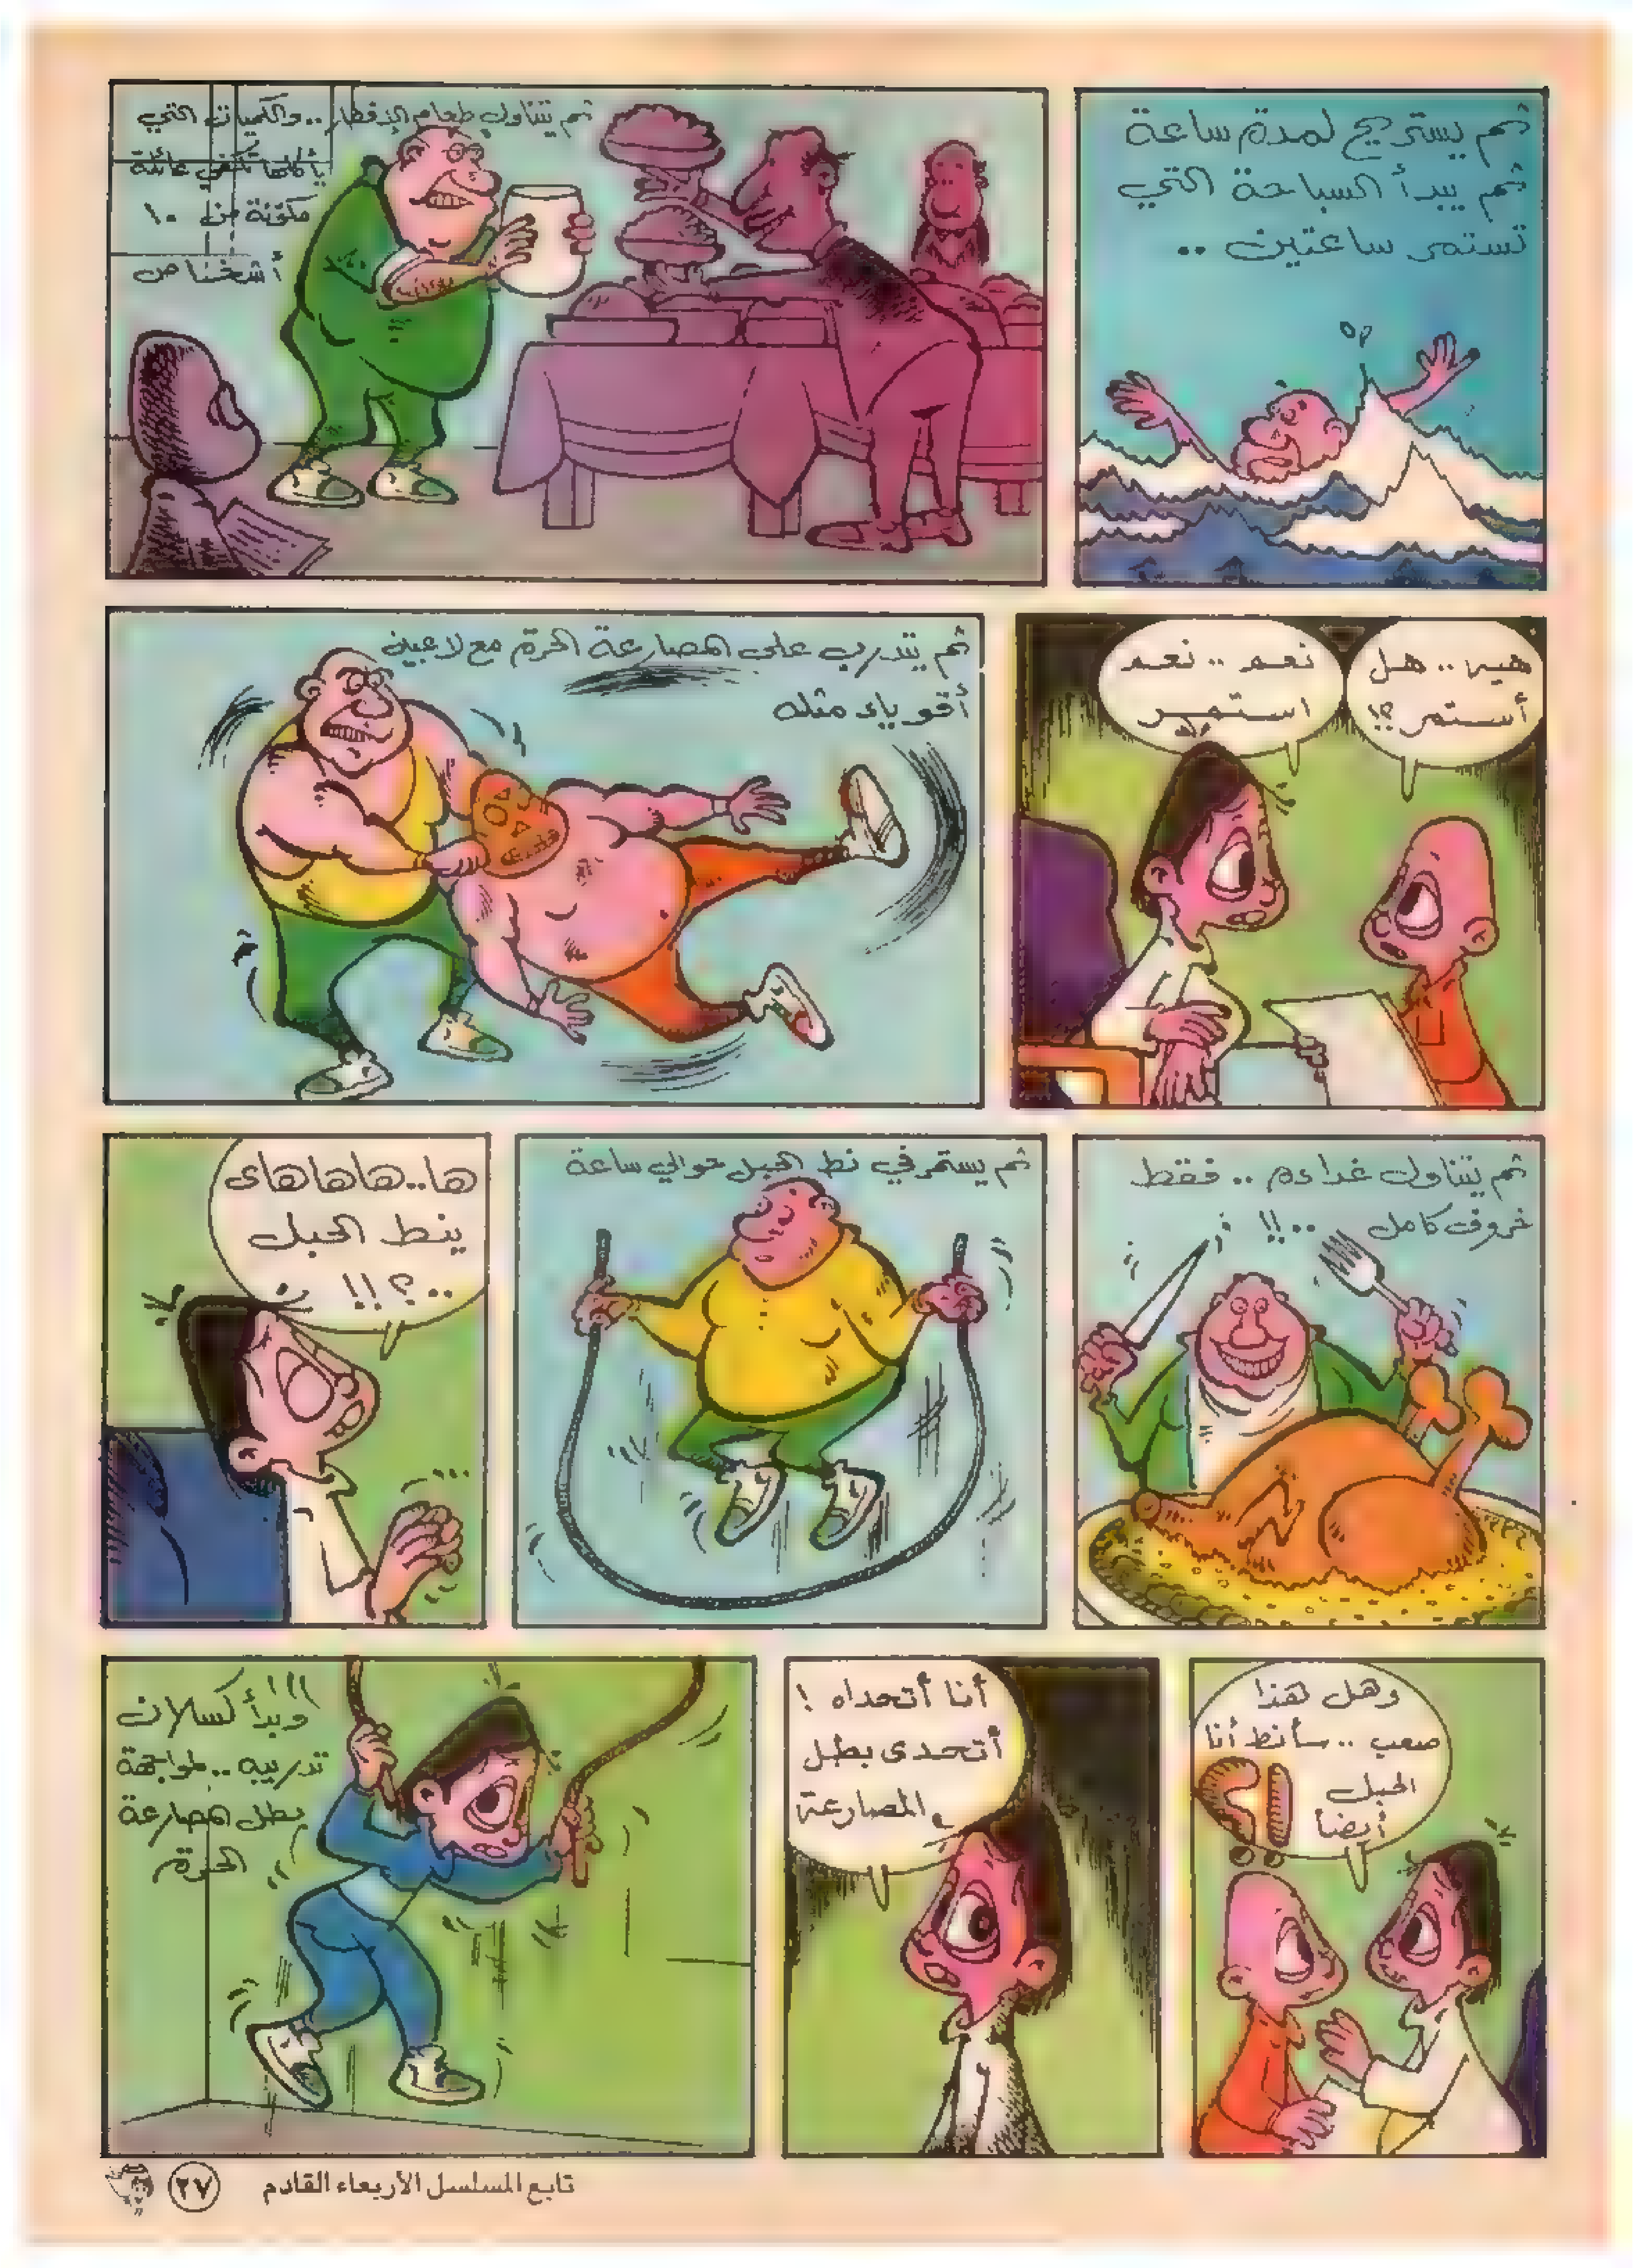 ثم يستريح لمدة ساعة
ثم يبدأ السباحة التي
تستمر ساعتين ..
ثم يتناول طعام الإفطار .. والكميات التي
يأكلها تكفي عائلة
مكونة من ١٠
أشخاص
هيه .. هل
أستمر ؟!
نعم .. نعم
استمر
ثم يتدرب على المصارعة الحرة مع لاعبين
أقوياء مثله
ثم يتناول غداءه .. فقط
خروف كامل ..!!
ثم يستمر في نط الحبل حوالي ساعة
ها..هاهاهاى
ينط الحبل
..؟!!
وهل هذا
صعب .. سأنط أنا
الحبل
أيضاً
؟!
أنا أتحداه !
أتحدى بطل
المصارعة
وبدأ كسلان
تدريبه .. لمواجهة
بطل المصارعة
الحرة
تابع المسلسل الأربعاء القادم
٢٧